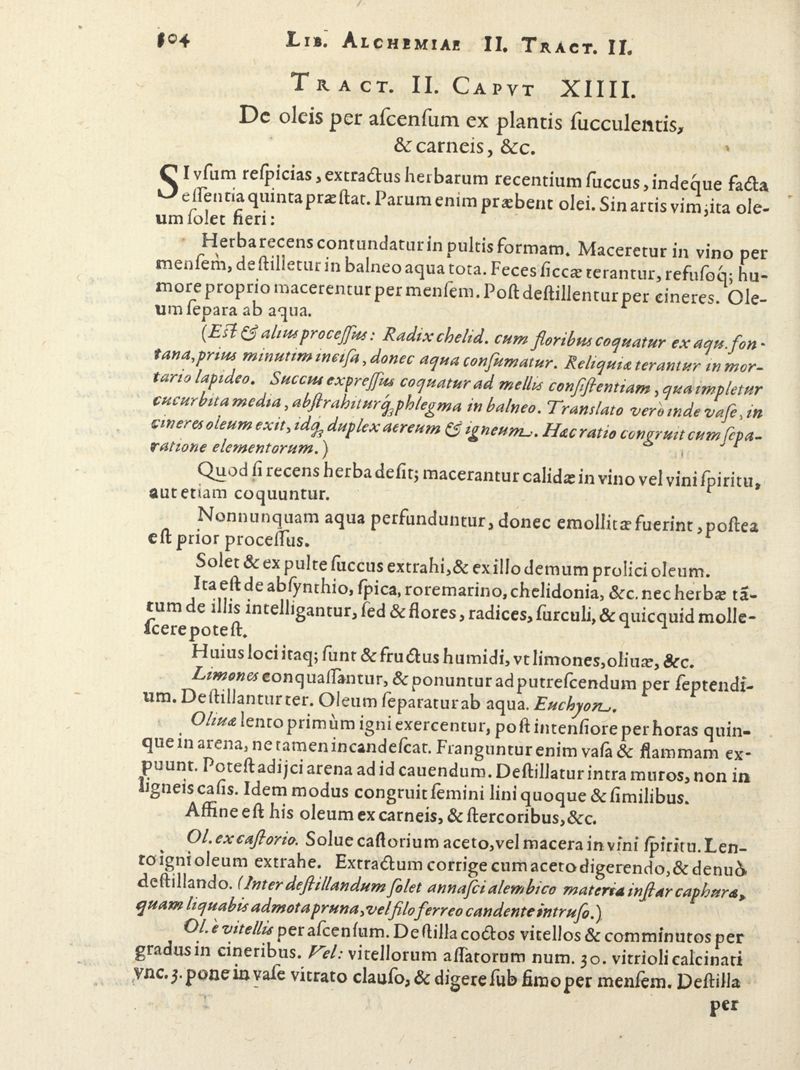 104 LIB. ALCHEMIAE II. TRACT. II.
TRACT. II. CAPVT XIIII.
De oleis per aſcenſum ex plantis ſucculentis,
& carneis, &c.
SI vſum reſpicias, extractus herbarum recentium ſuccus, indeque facta
eſſentia quinta præſtat. Parum enim præbent olei. Sin artis vim, ita ole-
um ſolet fieri:
Herba recens contundatur in pultis formam. Maceretur in vino per
menſem, deſtilletur in balneo aqua tota. Feces ſiccæ terantur, refuſoq; hu-
more proprio macerentur per menſem. Poſt deſtillentur per cineres. Ole-
um ſepara ab aqua.
(Eſt & alius proceſſus: Radix chelid. cum floribus coquatur ex aqu. fon-
tana, prius minutim inciſa, donec aqua conſumatur. Reliquiæ terantur in mor-
tario lapideo. Succus expreſſus coquatur ad mellis conſiſtentiam, qua impletur
cucurbita media, abſtrahiturq; phlegma in balneo. Translato vero inde vaſe, in
cineres oleum exit, idq; duplex aereum & igneum. Hæc ratio congruit cum ſepa-
ratione elementorum.)
Quod ſi recens herba deſit; macerantur calidæ in vino vel vini ſpiritu,
aut etiam coquuntur.
Nonnunquam aqua perfunduntur, donec emollitæ fuerint, poſtea
eſt prior proceſſus.
Solet & ex pulte ſuccus extrahi, & ex illo demum prolici oleum.
Ita eſt de abſynthio, ſpica, roremarino, chelidonia, &c. nec herbæ tā-
tum de illis intelligantur, ſed & flores, radices, ſurculi, & quicquid molle-
ſcere poteſt.
Huius loci itaq; ſunt & fructus humidi, vt limones, oliuæ, &c.
Limones conquaſſantur, & ponuntur ad putreſcendum per ſeptendi-
um. Deſtillantur ter. Oleum ſeparatur ab aqua. Euchyon.
Oliuæ lento primùm igni exercentur, poſt intenſiore per horas quin-
que in arena, ne tamen incandeſcat. Franguntur enim vaſa & flammam ex-
puunt. Poteſt adijci arena ad id cauendum. Deſtillatur intra muros, non in
ligneis caſis. Idem modus congruit ſemini lini quoque & ſimilibus.
Affine eſt his oleum ex carneis, & ſtercoribus, &c.
Ol. ex caſtorio. Solue caſtorium aceto, vel macera in vini ſpiritu. Len-
to igni oleum extrahe. Extractum corrige cum aceto digerendo, & denuò
deſtillando. (Inter deſtillandum ſolet annaſci alembico materia inſtar caphuræ,
quam liquabis admota pruna, vel filo ferreo candente intruſo.)
Ol. è vitellis per aſcenſum. Deſtilla coctos vitellos & comminutos per
gradus in cineribus. Vel: vitellorum aſſatorum num. 30. vitrioli calcinati
vnc. 3. pone in vaſe vitrato clauſo, & digere ſub fimo per menſem. Deſtilla
per